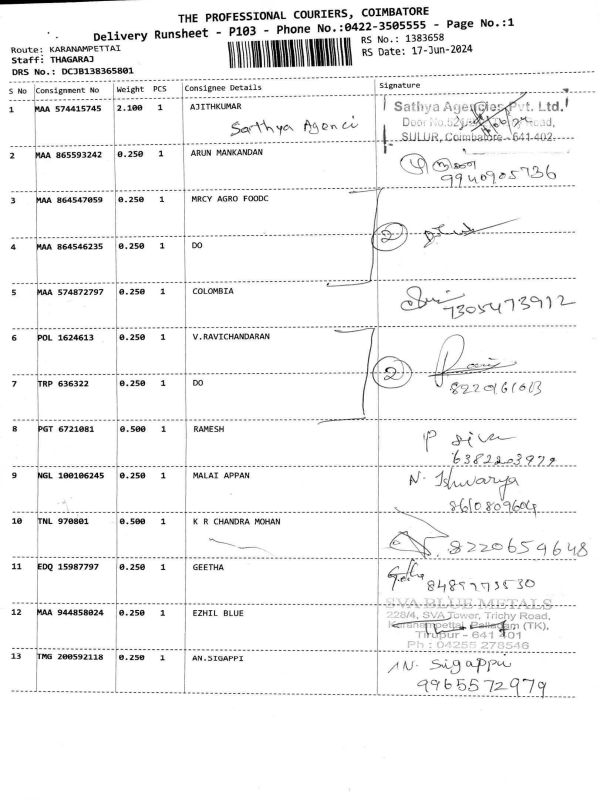 THE PROFESSIONAL COURIERS, COIMBATORE
Delivery Runsheet - P103 - Phone No.:0422-3505555 - Page No.:1
Route: KARANAMPETTAI
Staff: THAGARAJ
DRS No.: DCJB138365801
RS No.: 1383658
RS Date: 17-Jun-2024
S No Consignment No Weight PCS Consignee Details Signature
1 MAA 574415745 2.100 1 AJITHKUMAR
Sathya Agenci
Sathya Agencies Pvt. Ltd.
Door No.52 Road,
SULUR, Coimbatore - 641-402.
2 MAA 865593242 0.250 1 ARUN MANKANDAN
9940905736
3 MAA 864547059 0.250 1 MRCY AGRO FOODC
2
4 MAA 864546235 0.250 1 DO
5 MAA 574872797 0.250 1 COLOMBIA
7305473912
6 POL 1624613 0.250 1 V.RAVICHANDARAN
2
7 TRP 636322 0.250 1 DO
8220161013
8 PGT 6721081 0.500 1 RAMESH
P siva
6382203979
9 NGL 100106245 0.250 1 MALAI APPAN
N. Ishwarya
8610809604
10 TNL 970801 0.500 1 K R CHANDRA MOHAN
8220659648
11 EDQ 15987797 0.250 1 GEETHA
8485273530
12 MAA 944858024 0.250 1 EZHIL BLUE
SVA BLUE METALS
228/4, SVA Tower, Trichy Road,
Karanampettai, Palladam (TK),
Tirupur - 641 401
Ph : 04255 278546
13 TMG 200592118 0.250 1 AN.SIGAPPI
AN. Sigappi
9965572979